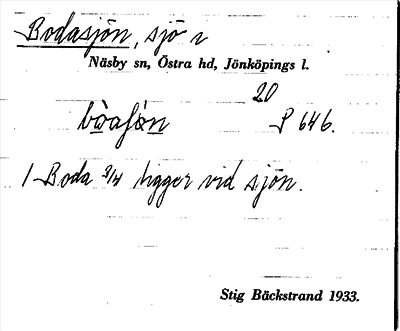 Bodasjön, sjö i
Näsby sn, Östra hd, Jönköpings l.
20
P 646.
1 Boda 3/4 ligger vid sjön.
Stig Bäckstrand 1933.